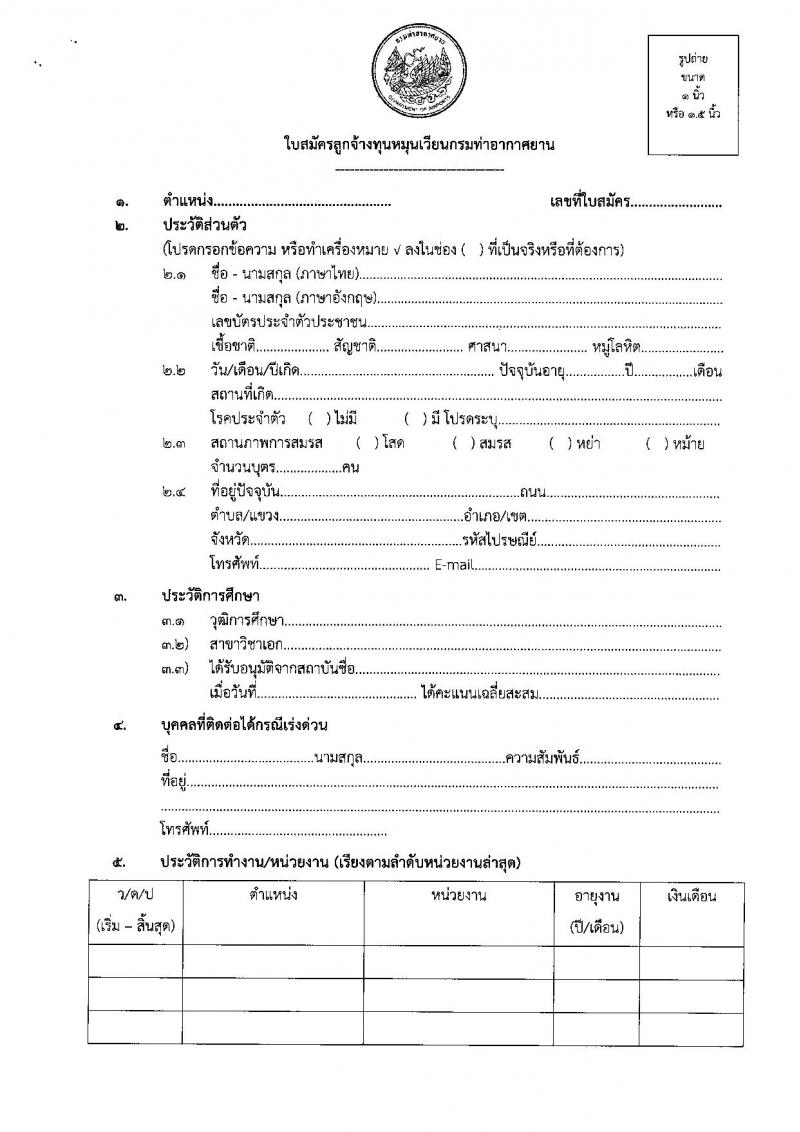 กรมท่าอากาศยาน
DEPARTMENT OF AIRPORTS
รูปถ่าย
ขนาด
๑ นิ้ว
หรือ ๑.๕ นิ้ว
ใบสมัครลูกจ้างทุนหมุนเวียนกรมท่าอากาศยาน
๑. ตำแหน่ง.................................................. เลขที่ใบสมัคร.........................
๒. ประวัติส่วนตัว
(โปรดกรอกข้อความ หรือทำเครื่องหมาย √ ลงในช่อง ( ) ที่เป็นจริงหรือที่ต้องการ)
๒.๑ ชื่อ - นามสกุล (ภาษาไทย)....................................................................................................
ชื่อ - นามสกุล (ภาษาอังกฤษ)................................................................................................
เลขบัตรประจำตัวประชาชน...................................................................................................
เชื้อชาติ.................... สัญชาติ........................ ศาสนา...................... หมู่โลหิต.......................
๒.๒ วัน/เดือน/ปีเกิด...................................................... ปัจจุบันอายุ................ปี................เดือน
สถานที่เกิด............................................................................................................................
โรคประจำตัว ( ) ไม่มี ( ) มี โปรดระบุ..............................................................
๒.๓ สถานภาพการสมรส ( ) โสด ( ) สมรส ( ) หย่า ( ) หม้าย
จำนวนบุตร..................คน
๒.๔ ที่อยู่ปัจจุบัน..................................................................ถนน................................................
ตำบล/แขวง...................................................อำเภอ/เขต......................................................
จังหวัด...........................................................รหัสไปรษณีย์...................................................
โทรศัพท์............................................... E-mail....................................................................
๓. ประวัติการศึกษา
๓.๑ วุฒิการศึกษา.........................................................................................................................
๓.๒) สาขาวิชาเอก.........................................................................................................................
๓.๓) ได้รับอนุมัติจากสถาบันชื่อ.....................................................................................................
เมื่อวันที่............................................ ได้คะแนนเฉลี่ยสะสม..................................................
๔. บุคคลที่ติดต่อได้กรณีเร่งด่วน
ชื่อ......................................นามสกุล........................................ความสัมพันธ์.......................................
ที่อยู่....................................................................................................................................................
............................................................................................................................................................
โทรศัพท์.................................................
๕. ประวัติการทำงาน/หน่วยงาน (เรียงตามลำดับหน่วยงานล่าสุด)
ว/ด/ป ตำแหน่ง หน่วยงาน อายุงาน เงินเดือน
(เริ่ม – สิ้นสุด) (ปี/เดือน)